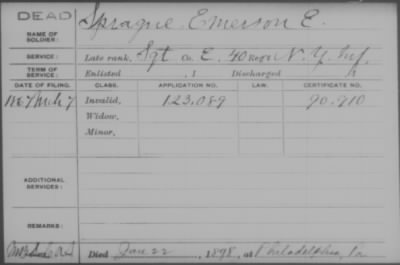 DEAD
NAME OF SOLDIER: Sprague Emerson E.
SERVICE: Late rank, Sgt Co. E, 40 Reg't N. Y. Inf.
TERM OF SERVICE: Enlisted , 1 Discharged , 1
DATE OF FILING. CLASS. APPLICATION NO. LAW. CERTIFICATE NO.
1867 Mch 7 Invalid, 123.089 90.910
Widow,
Minor,
ADDITIONAL SERVICES:
REMARKS:
Died 22 , 1898, at Philadelphia, Pa